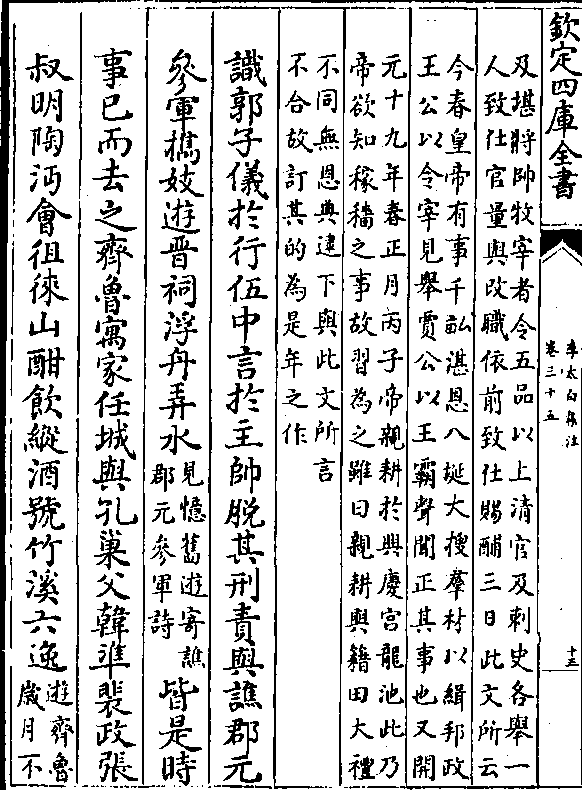 欽定四庫全書
李太白集注
卷三十五
十五
及堪將帥牧宰者令五品以上清官及刺史各舉一
人致仕官量與改職依前致仕賜酺三日此文所云
今春皇帝有事千畝湛恩八埏大搜羣材以緝邦政
王公以令宰見舉賈公以王霸聲聞正其事也又開
元十九年春正月丙子帝親耕於興慶宫龍池此乃
帝欲知稼穡之事故習為之雖曰親耕與籍田大禮
不同無恩典逮下與此文所言
不合故訂其的為是年之作
識郭子儀於行伍中言於主帥脱其刑責與譙郡元
參軍㩦妓遊晋祠浮舟弄水見憶舊遊寄譙
郡元參軍詩皆是時
事已而去之齊魯寓家任城與孔巢父韓準裴政張
叔明陶沔會徂徠山酣飲縱酒號竹溪六逸遊齊魯
嵗月不